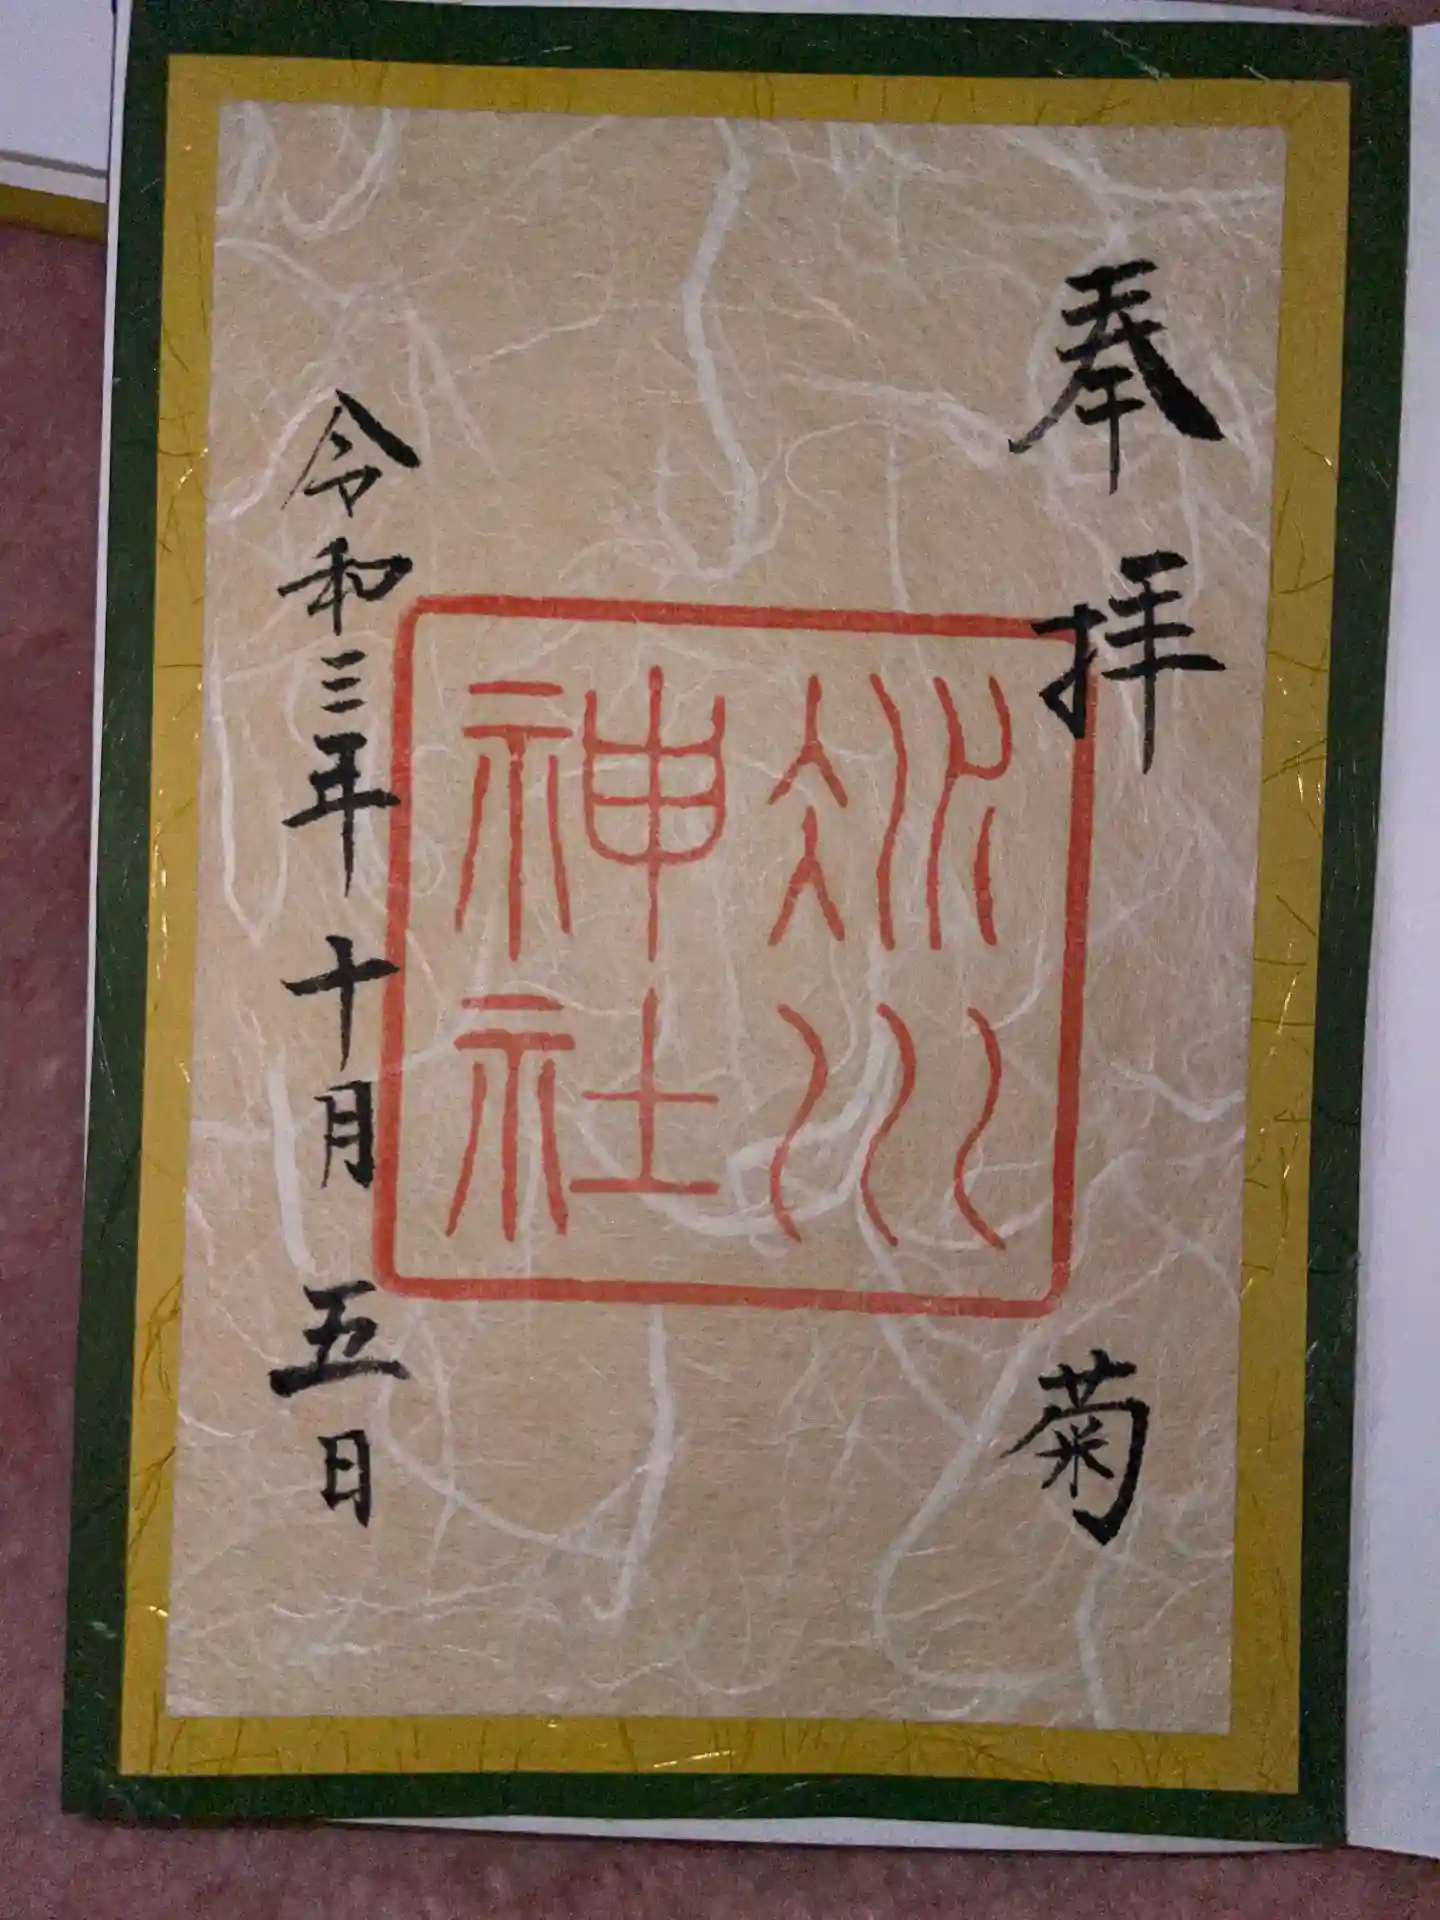 奉拝
菊
冰川
神社
令和三年十月五日